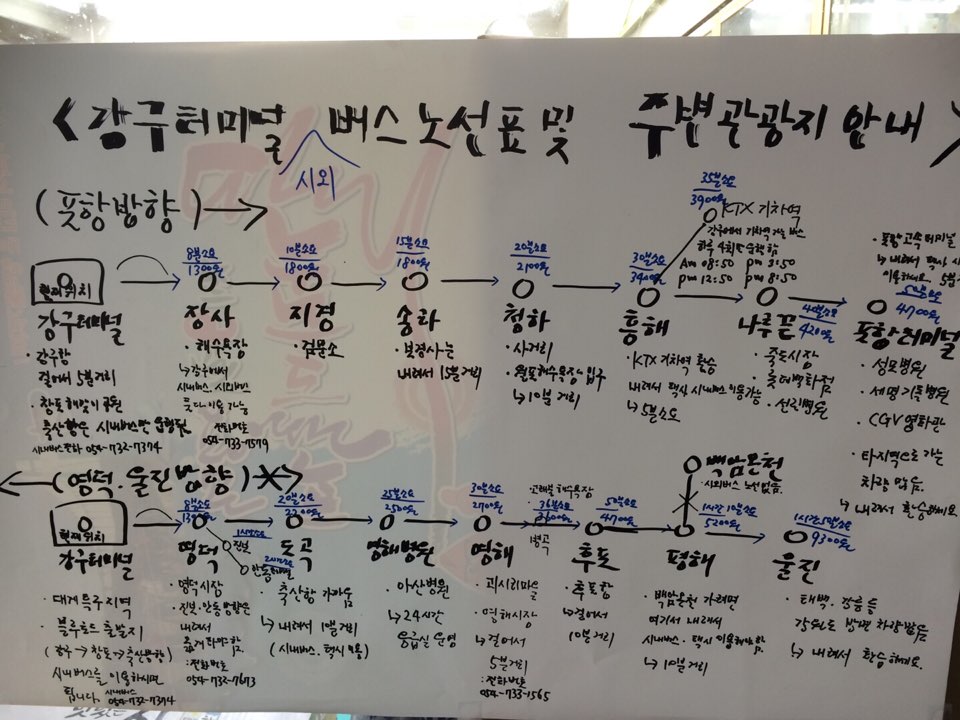 <강구터미널 버스노선표 및 주변관광지 안내>
시외
(포항방향)→
현재위치
강구터미널
· 강구항
걸어서 5분거리
· 창포해맞이공원
축산항은 시내버스만 운행됨
시내버스전화 054-732-7374
8분소요
1300원
장사
· 해수욕장
↳ 강구에서
시내버스, 시외버스
둘다 이용가능
전화번호
054-733-7579
10분소요
1800원
지경
· 검문소
15분소요
1800원
송라
· 보경사는
내려서 15분거리
20분소요
2100원
청하
· 사거리
· 월포해수욕장 입구
↳ 1분거리
30분소요
3400원
흥해
· KTX 기차역 환승
내려서 택시 시내버스 이용가능
↳ 5분소요
35분소요
3900원
KTX 기차역
강구에서 기차역가는 버스
하루 4회만 운행함
Am 08:50 pm 3:50
pm 12:50 pm 8:50
나루끝
· 죽도시장
· 롯데백화점
· 선린병원
40분소요
4200원
· 포항고속터미널
↳ 내려서 택시
50분소요
4700원
포항터미널
· 성모병원
· 세명기독병원
· CGV영화관
· 타지역으로 가는
차량 많음.
↳ 내려서 환승하세요
(영덕·울진방향)
현재위치
강구터미널
· 대게 특구지역
· 블루로드 출발지
(강구→창포→축산방향)
시내버스를 이용하시면
됩니다 시내버스 054-732-7374
8분소요
영덕
· 영덕시장
진보·안동방향은
내려서
:전화번호
054-732-7673
1시간소요
진보
20분소요
2200원
도곡
· 축산항 가까움
↳ 내려서 1분거리
(시내버스·택시 이용)
25분소요
2500원
영해병원
· 아산병원
↳ 24시간
응급실 운영
30분소요
2700원
영해
· 괴시리마을
· 영해시장
↳ 걸어서
5분거리
:전화번호
054-733-1565
·고래불해수욕장
병곡
50분소요
4700원
후포
· 후포항
↳ 걸어서
10분거리
백암온천
·시외버스 노선 없음.
1시간10분소요
5200원
평해
· 백암온천 가려면
여기서 내려서
시내버스·택시 이용해야함.
↳ 10분거리
9300원
울진
· 태백·강릉 등
강원도 방면 차량 많음
↳ 내려서 환승하세요.